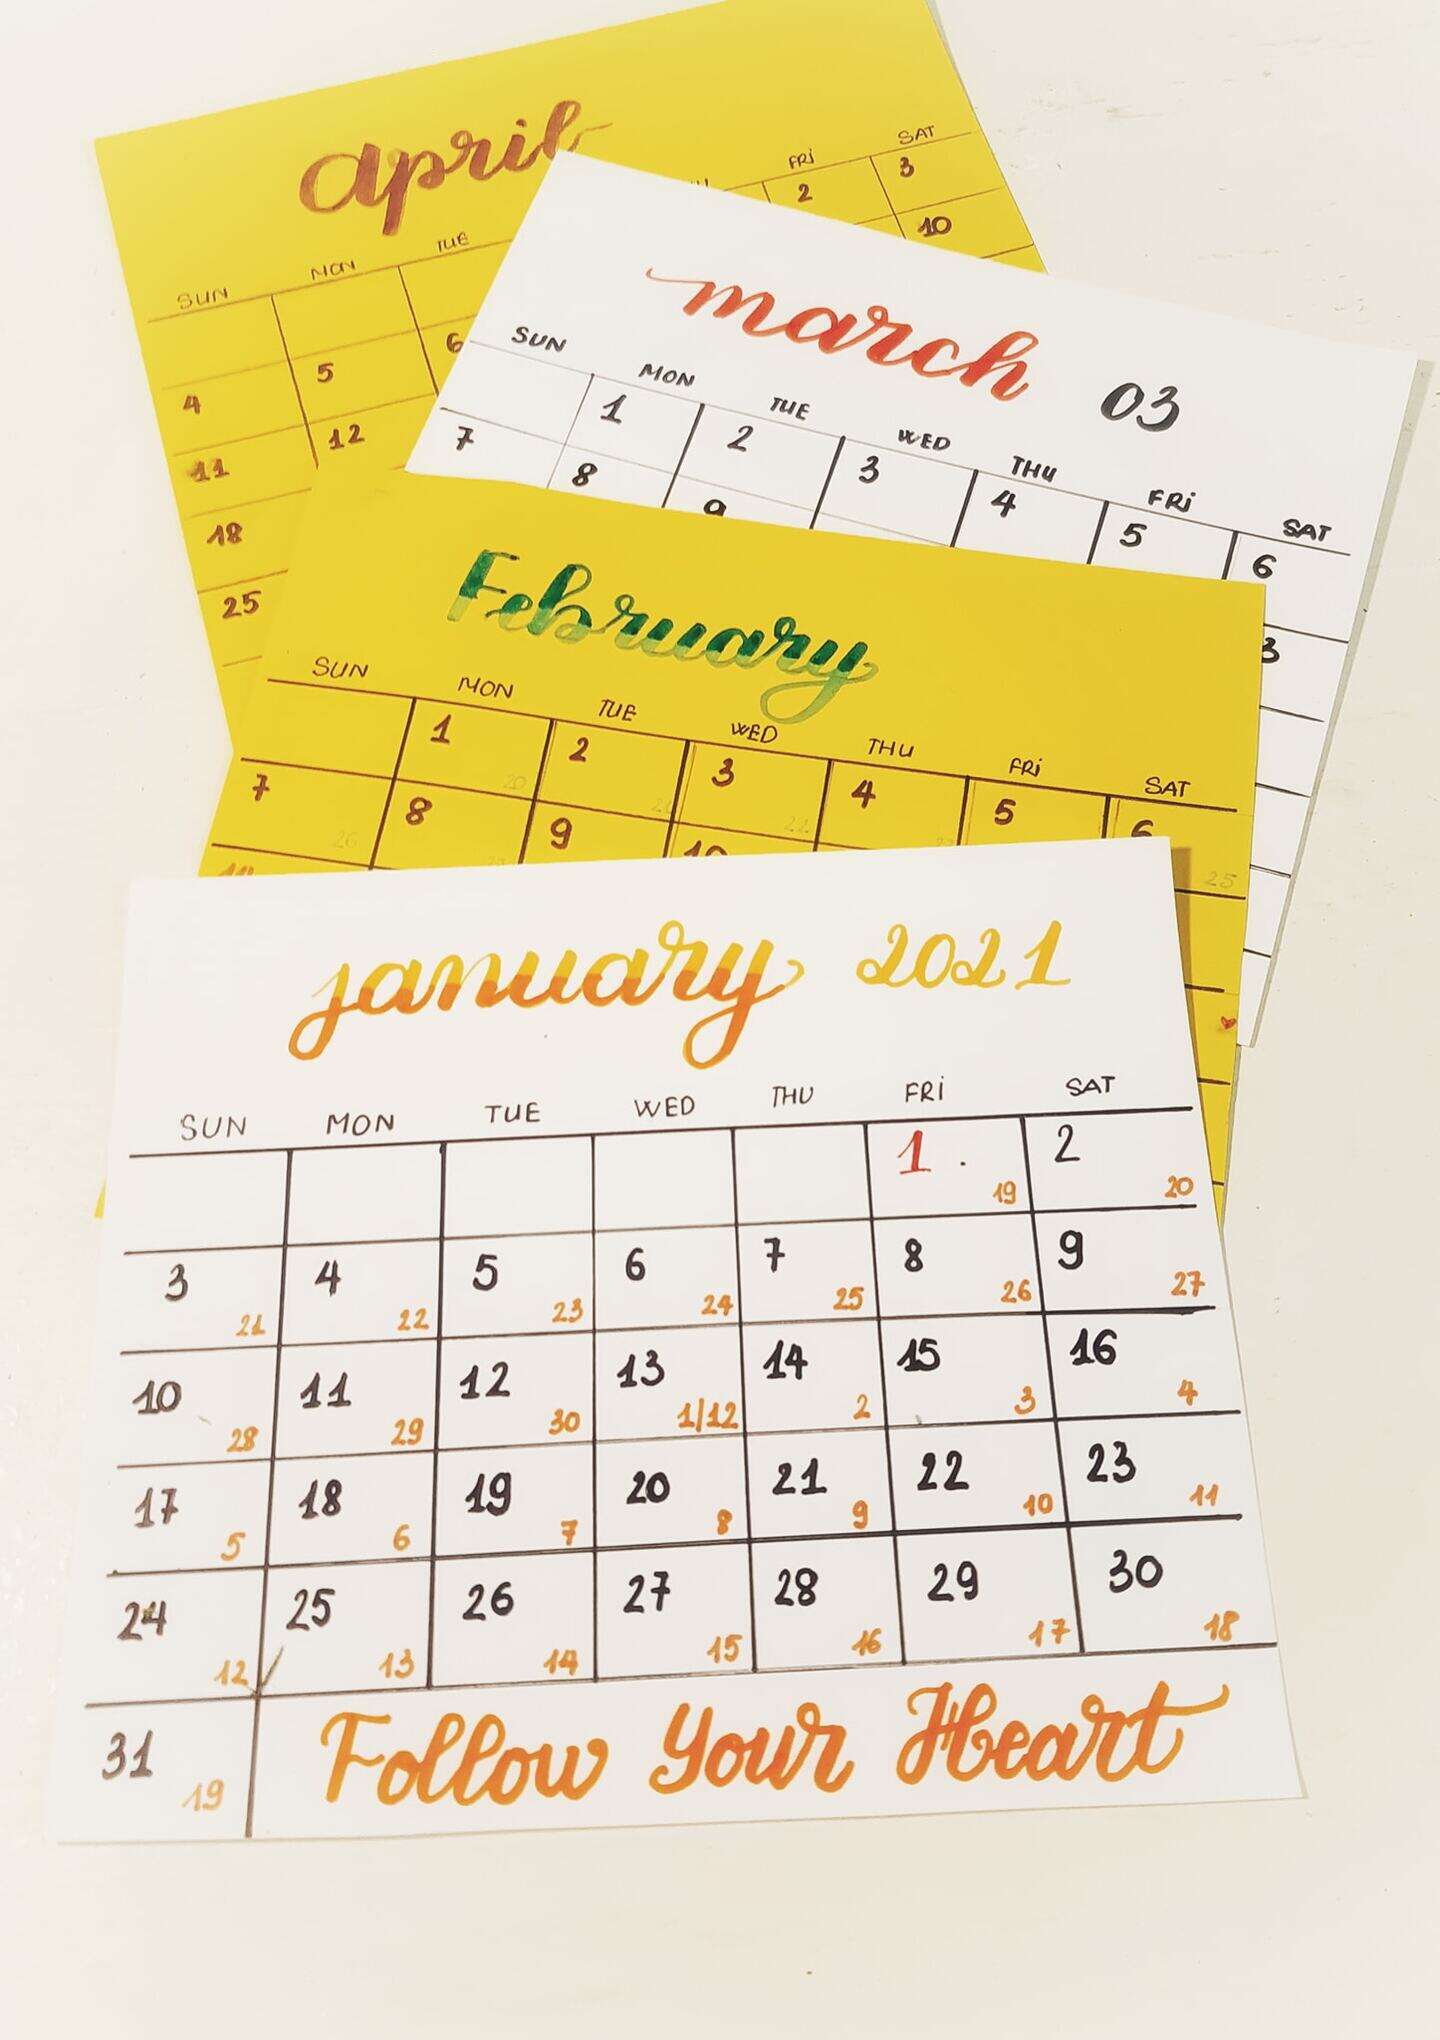 April
SUN MON TUE FRi SAT
2 3
10
4 5 6
11 12
18
25
march 03
SUN MON TUE WED THU FRi SAT
1 2 3 4 5 6
7 8 9
February
SUN MON TUE WED THU FRi SAT
1 2 3 4 5 6
20 22 25
7 8 9 10
26
january 2021
SUN MON TUE WED THU FRi SAT
1. 2
19 20
3 4 5 6 7 8 9
21 22 23 24 25 26 27
10 11 12 13 14 15 16
28 29 30 1/12 2 3 4
17 18 19 20 21 22 23
5 6 7 8 9 10 11
24 25 26 27 28 29 30
12 13 14 15 16 17 18
31
19
Follow Your Heart